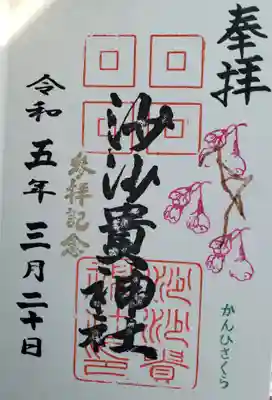 奉拝
かんひさくら
沙沙貴神社
参拝記念
令和五年三月二十日
沙沙貴
神社印